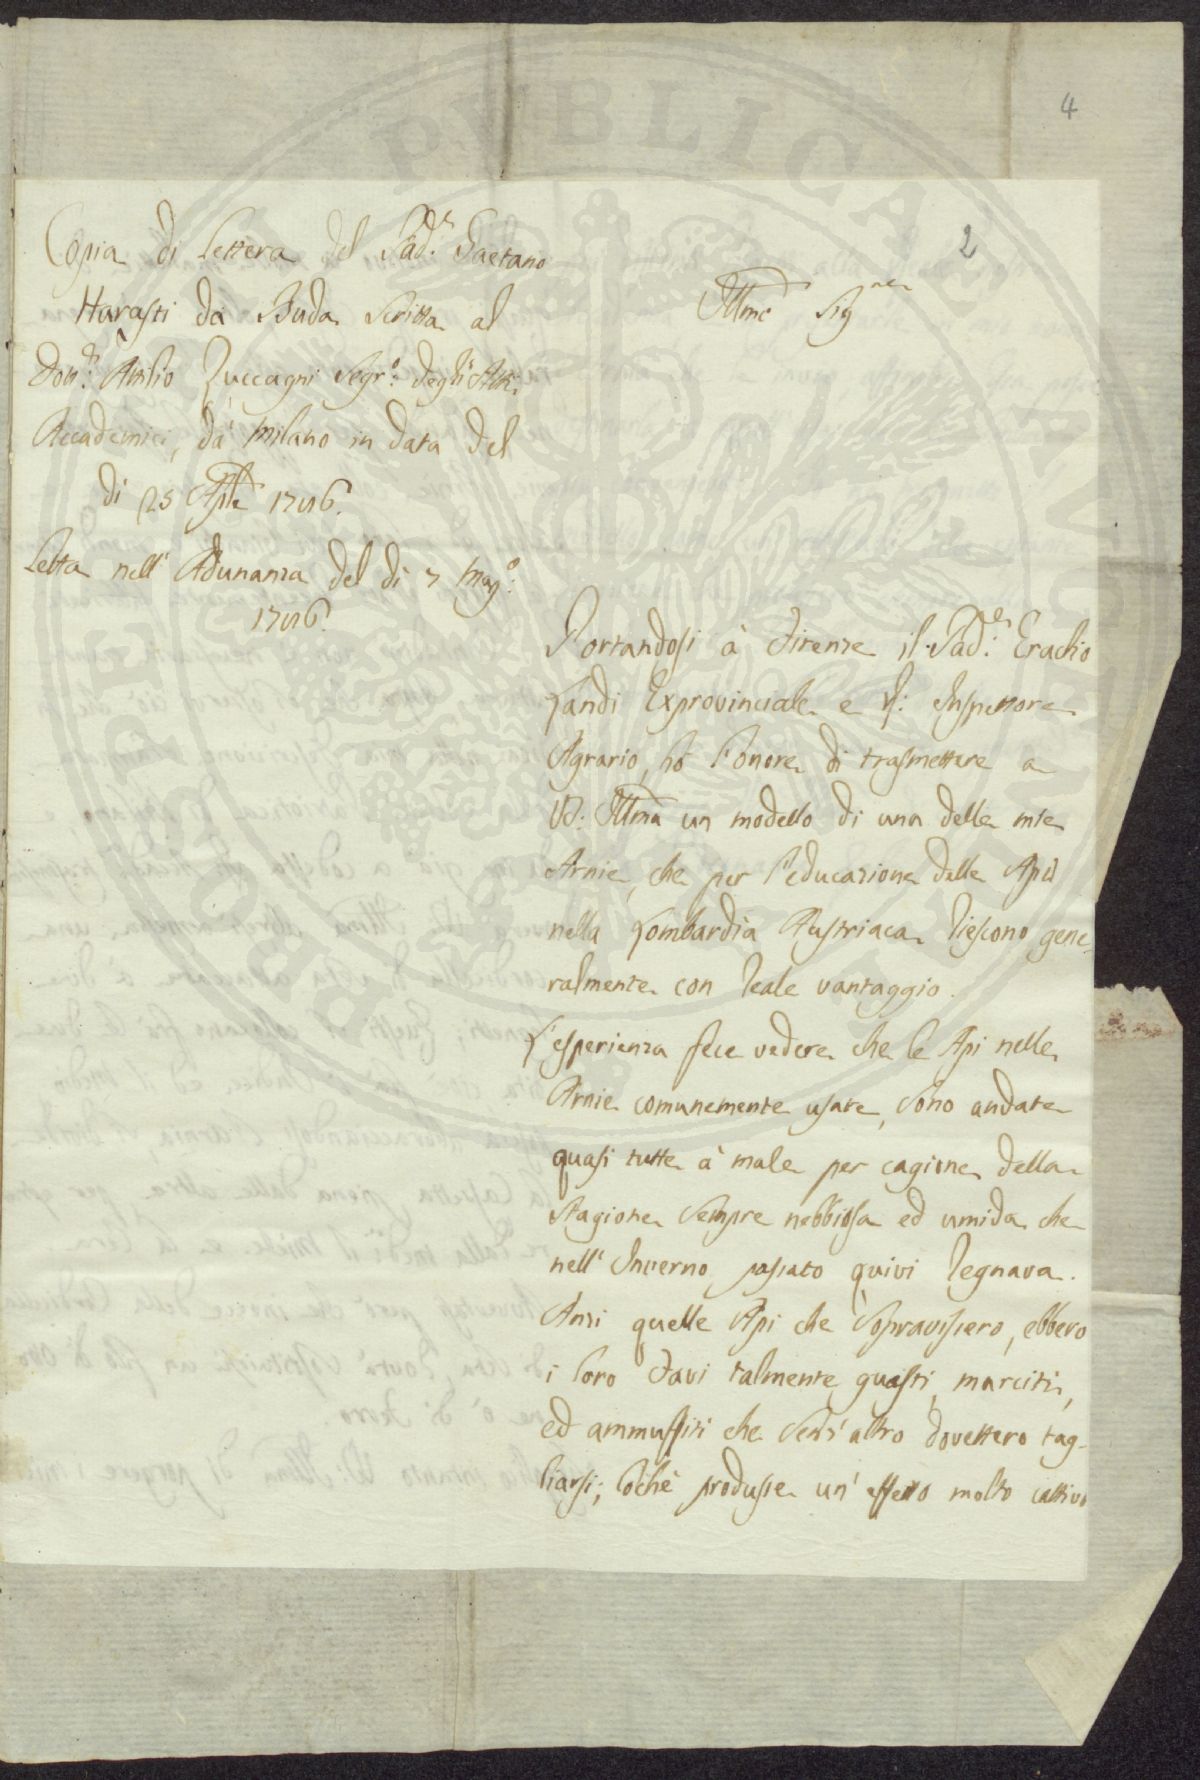 4
2
Copia di Lettera del Pad.e Gaetano
Harasti da Buda scritta al
Dott.r Attilio Zuccagni Segr.o degli Atti
Accademici, da Milano in data del
di 25 Aple 1786.
Letta nell' Adunanza del di 7 Mag.o
1786.
Illmo Sig.re
Portandosi à Firenze il Pad.e Eraclio
Landi Exprovinciale e R: Inspettore
Agrario, hò l'onore di trasmettere a
VS: Illma un modello di una delle mie
Arnie, che per l'educazione delle Api
nella Lombardia Austriaca riescono gene-
ralmente con reale vantaggio.
L'esperienza fece vedere che le Api nelle
Arnie comunemente usate, sono andate
quasi tutte à male per cagione della
stagione sempre nebbiosa ed umida che
nell' Inverno passato quivi regnava.
Anzi quelle Api che sopravissero, ebbero
i loro Favi talmente guasti, marciti,
ed ammuffiti che senz' altro dovettero tag-
liarsi; locchè produsse un' effetto molto cattivo